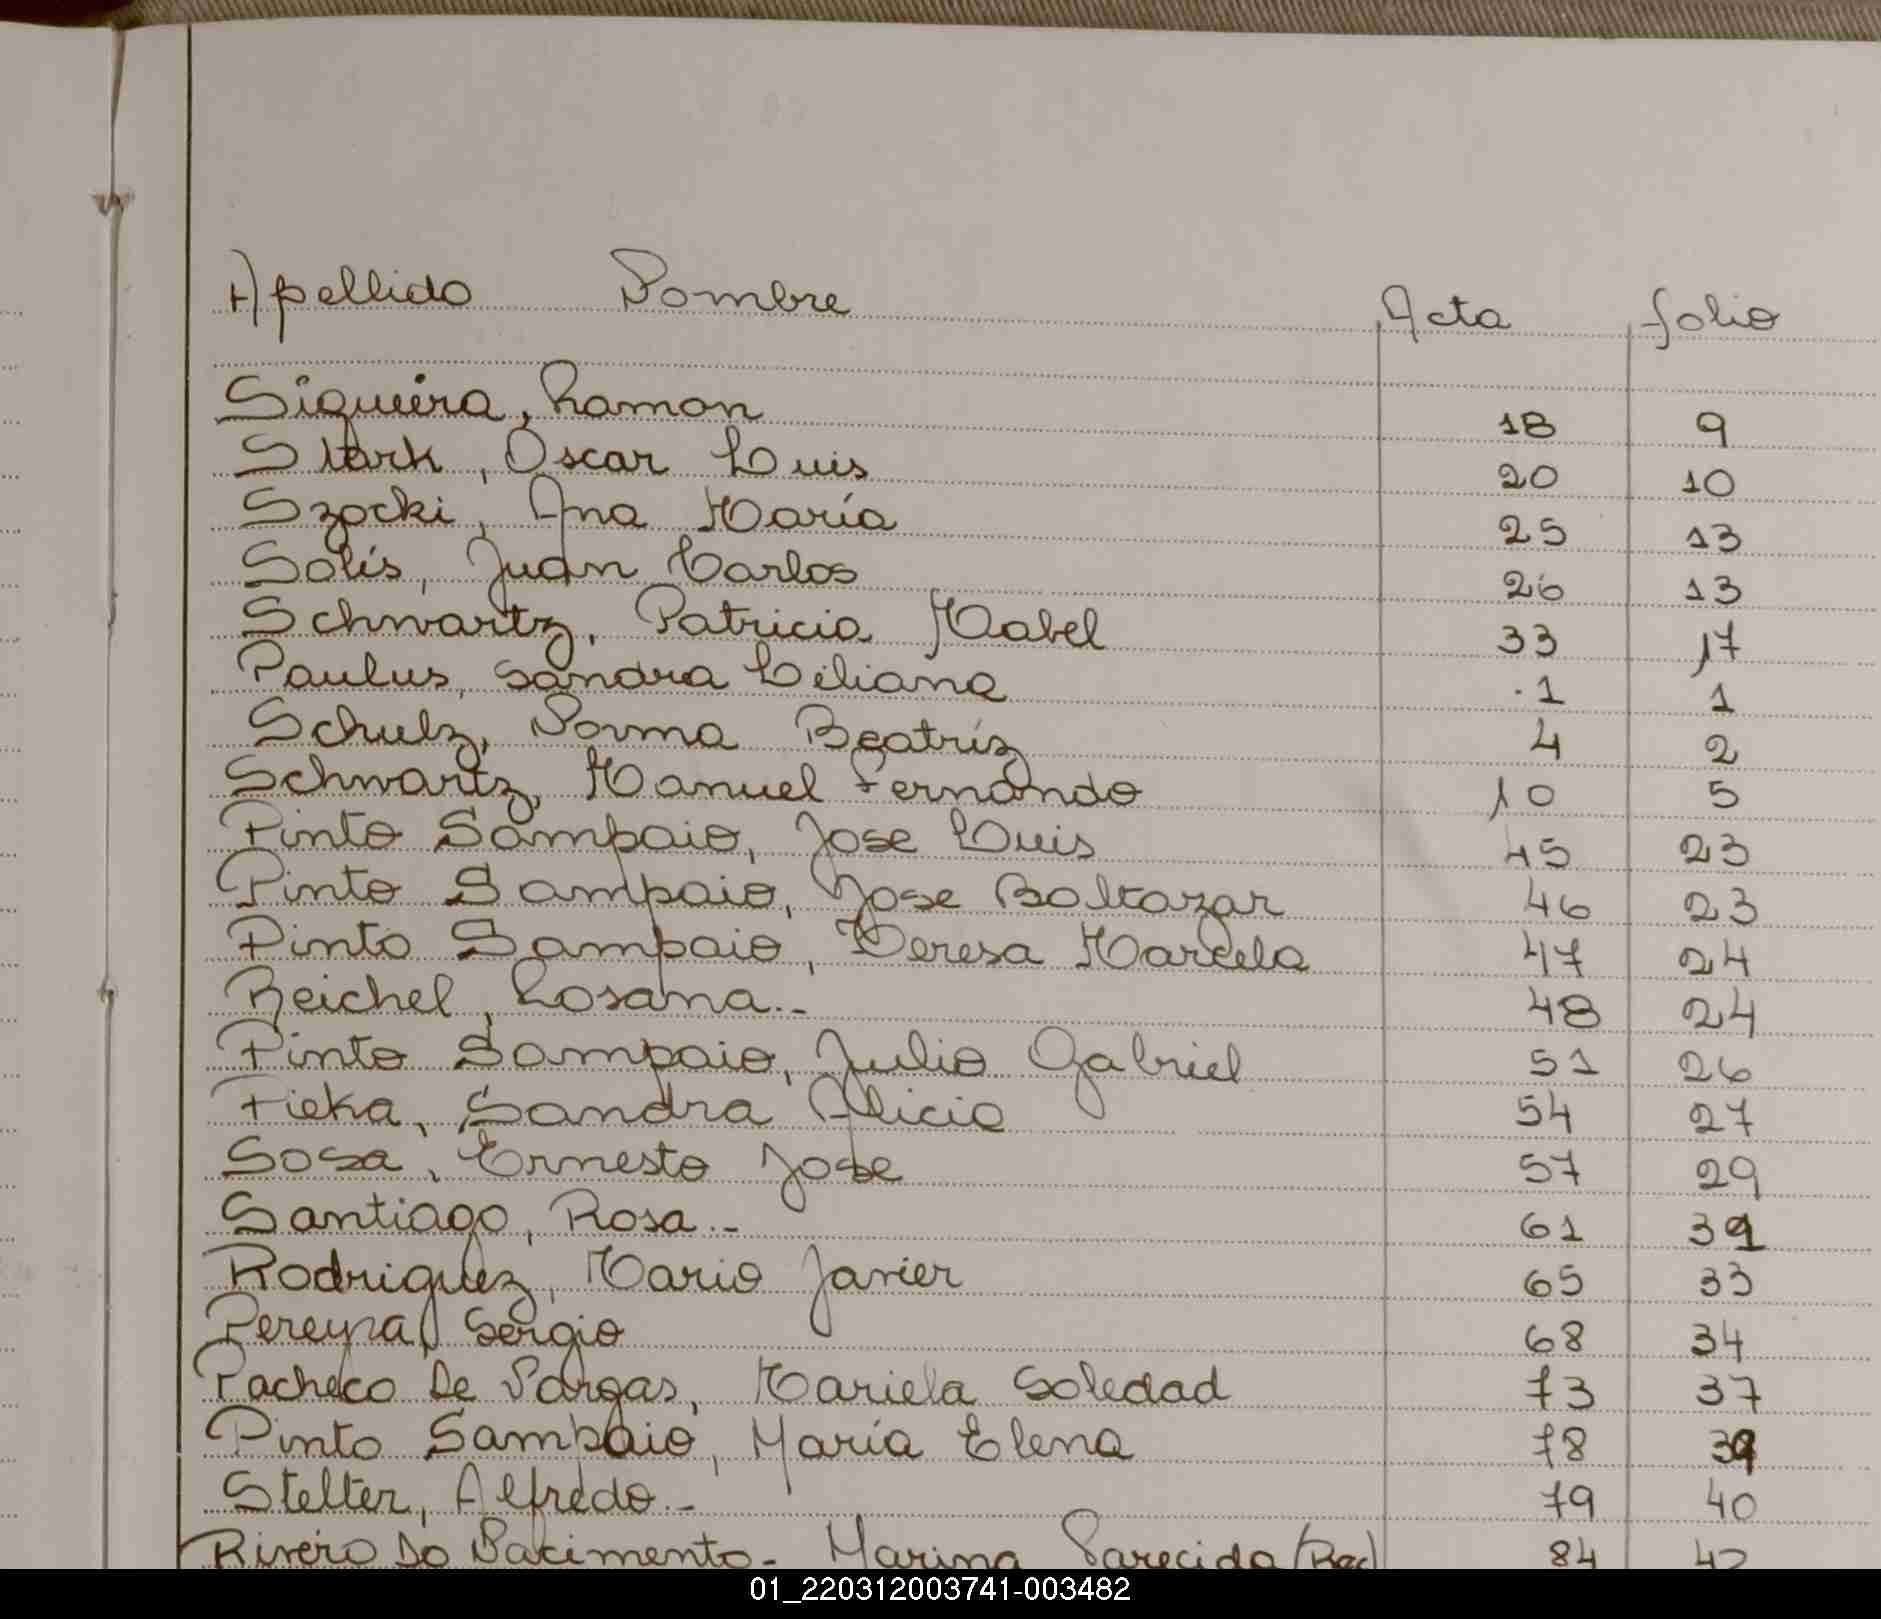 Apellido Nombre Acta folio
Siqueira, Ramon 18 9
Stark, Oscar Luis 20 10
Szocki, Ana María 25 13
Solís, Juan Carlos 26 13
Schwartz, Patricia Mabel 33 17
Paulus, Sandra Liliana 1 1
Schulz, Norma Beatríz 4 2
Schwartz, Manuel Fernando 10 5
Pinto Sampaio, Jose Luis 45 23
Pinto Sampaio, Jose Baltazar 46 23
Pinto Sampaio, Teresa Marcela 47 24
Reichel, Rosana.- 48 24
Pinto Sampaio, Julio Gabriel 51 26
Pieka, Sandra Alicia 54 27
Sosa, Ernesto Jose 57 29
Santiago, Rosa.- 61 31
Rodriguez, Mario Javier 65 33
Pereyra, Sergio 68 34
Pacheco De Vargas, Mariela Soledad 73 37
Pinto Sampaio, María Elena 78 39
Stelter, Alfredo.- 79 40
Rivero Do Nacimento- Marina Parecida (Rec) 84 42
01_220312003741-003482